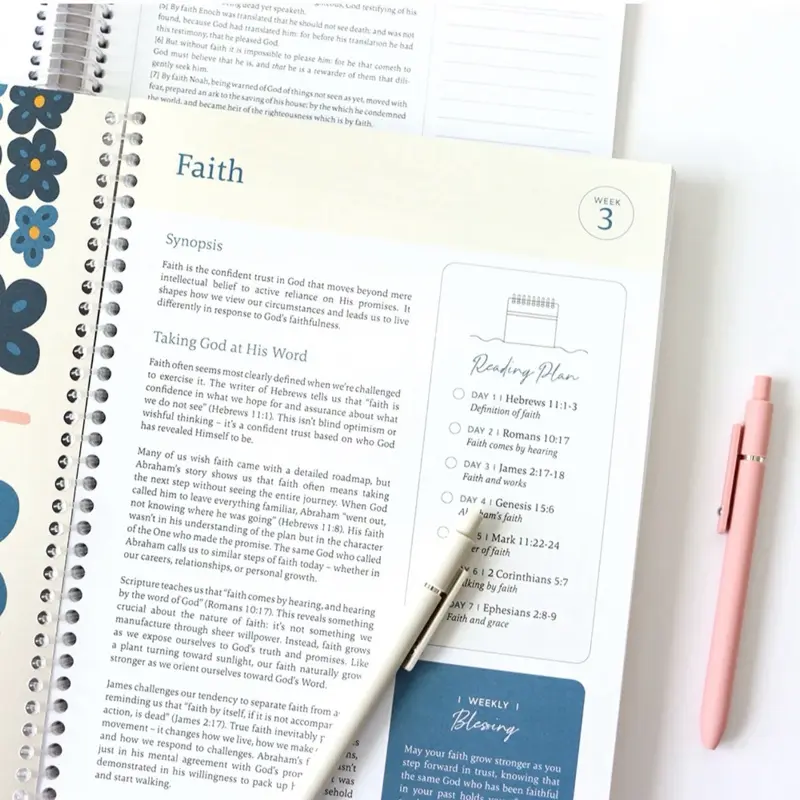 being dead yet speaketh.
[5] By faith Enoch was translated that he should not see death, and was not
found, because God had translated him: for before his translation he had
this testimony, that he pleased God.
[6] But without faith it is impossible to please him: for he that cometh to
God must believe that he is, and that he is a rewarder of them that dili-
gently seek him.
[7] By faith Noah, being warned of God of things not seen as yet, moved with
fear, prepared an ark to the saving of his house; by the which he condemned
the world, and became heir of the righteousness which is by faith.
Faith
WEEK
3
Synopsis
Faith is the confident trust in God that moves beyond mere
intellectual belief to active reliance on His promises. It
shapes how we view our circumstances and leads us to live
differently in response to God's faithfulness.
Taking God at His Word
Faith often seems most clearly defined when we're challenged
to exercise it. The writer of Hebrews tells us that "faith is
confidence in what we hope for and assurance about what
we do not see" (Hebrews 11:1). This isn't blind optimism or
wishful thinking – it's a confident trust based on who God
has revealed Himself to be.
Many of us wish faith came with a detailed roadmap, but
Abraham's story shows us that faith often means taking
the next step without seeing the entire journey. When God
called him to leave everything familiar, Abraham "went out,
not knowing where he was going" (Hebrews 11:8). His faith
wasn't in his understanding of the plan but in the character
of the One who made the promise. The same God who called
Abraham calls us to similar steps of faith today – whether in
our careers, relationships, or personal growth.
Scripture teaches us that "faith comes by hearing, and hearing
by the word of God" (Romans 10:17). This reveals something
crucial about the nature of faith: it's not something we
manufacture through sheer willpower. Instead, faith grows
as we expose ourselves to God's truth and promises. Like
a plant turning toward sunlight, our faith naturally grows
stronger as we orient ourselves toward God's Word.
James challenges our tendency to separate faith from
reminding us that "faith by itself, if it is not
action, is dead" (James 2:17). True faith inevitably
movement – it changes how we live, how we make
and how we respond to challenges. Abraham's
just in his mental agreement with God's
demonstrated in his willingness to pack up was
and start walking.
Reading Plan
DAY 1 | Hebrews 11:1-3
Definition of faith
DAY 2 | Romans 10:17
Faith comes by hearing
DAY 3 | James 2:17-18
Faith and works
DAY 4 | Genesis 15:6
faith
5 | Mark 11:22-24
of faith
6 | 2 Corinthians 5:7
by faith
DAY 7 | Ephesians 2:8-9
Faith and grace
| WEEKLY |
Blessing
May your faith grow stronger as you
step forward in trust, knowing that
the same God who has been faithful
in your past holds